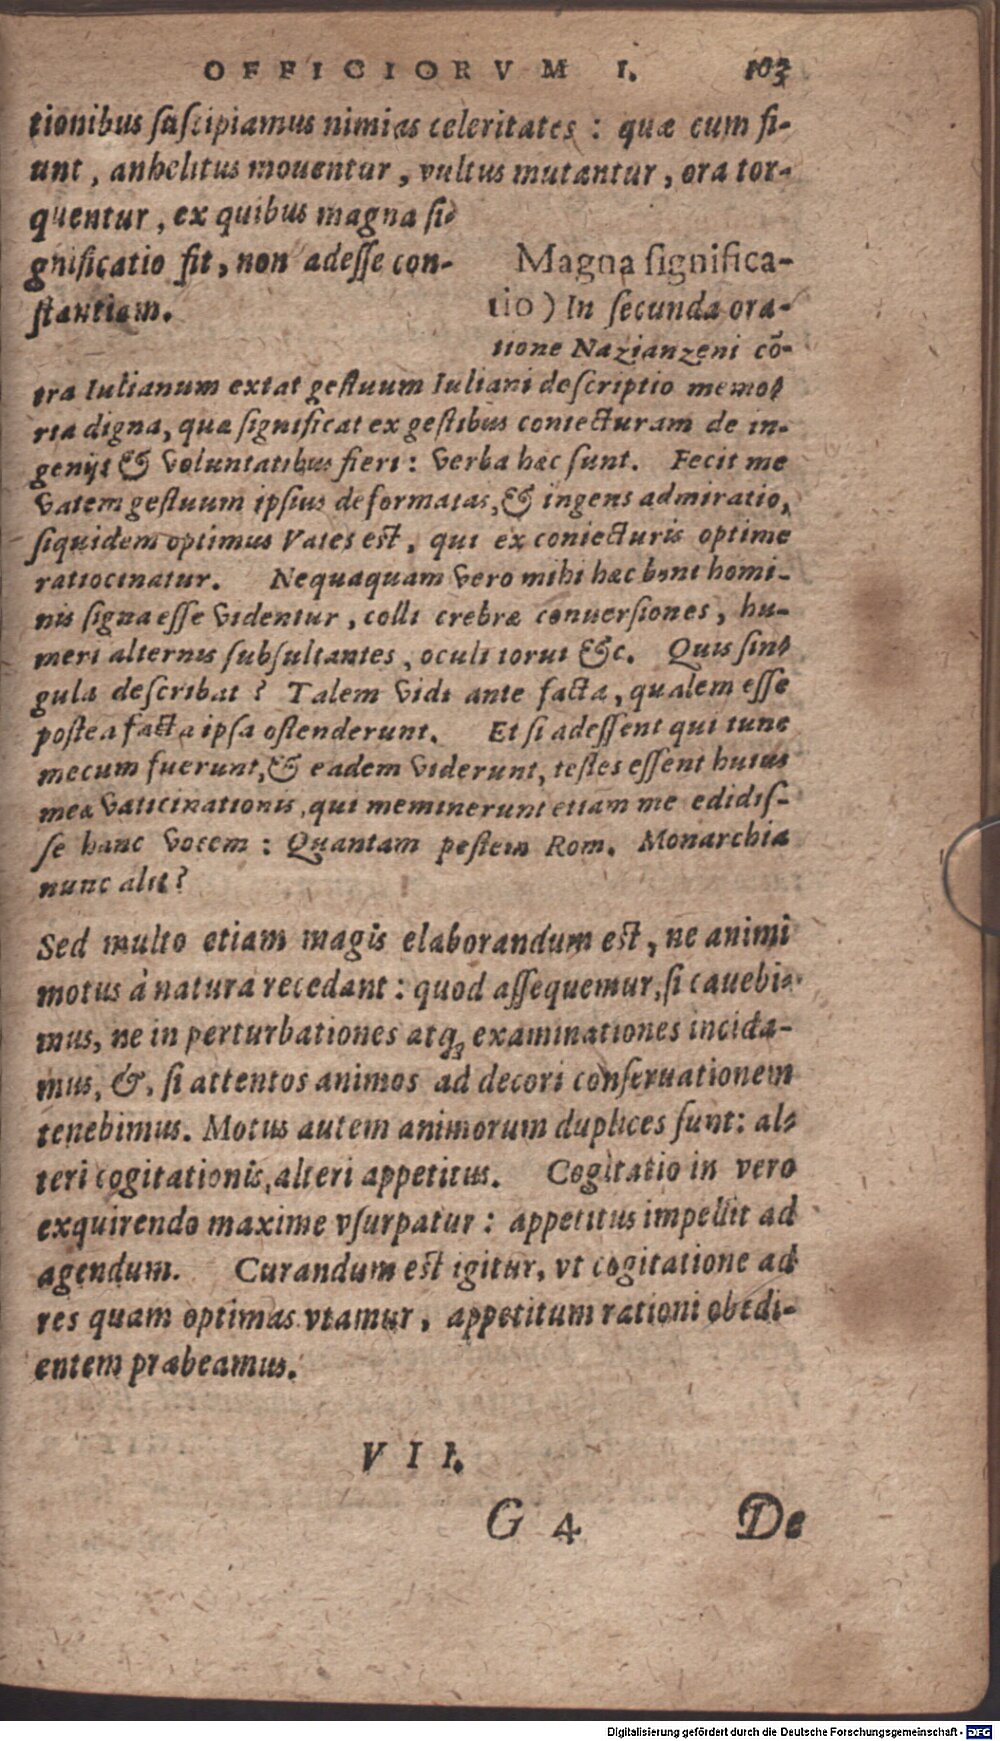 OFFICIORVM I. 103
tionibus suscipiamus nimias celeritates : quæ cum fi-
unt, anhelitus mouentur, vultus mutantur, ora tor-
quentur, ex quibus magna si-
gnificatio fit, non adesse con-
stantiam.
Magna significa-
tio) In secunda ora-
tione Nazianzeni cō-
tra Iulianum extat gestuum Iuliani descriptio memo-
ria digna, quæ significat ex gestibus coniecturam de in-
genijs & voluntatibus fieri : verba hæc sunt. Fecit me
vatem gestuum ipsius deformatas, & ingens admiratio,
siquidem optimus Vates est, qui ex coniecturis optime
ratiocinatur. Nequaquam vero mihi hæc boni homi-
nis signa esse videntur, colli crebræ conuersiones, hu-
meri alternis subsultantes, oculi torui &c. Quis sin-
gula describat ? Talem vidi ante facta, qualem esse
postea facta ipsa ostenderunt. Et si adessent qui tunc
mecum fuerunt, & eadem viderunt, testes essent huius
meæ vaticinationis, qui meminerunt etiam me edidis-
se hanc vocem : Quantam pestem Rom. Monarchia
nunc alit ?
Sed multo etiam magis elaborandum est, ne animi
motus à natura recedant : quod assequemur, si cauebi-
mus, ne in perturbationes atq; examinationes incida-
mus, &, si attentos animos ad decori conseruationem
tenebimus. Motus autem animorum duplices sunt: al-
teri cogitationis, alteri appetitus. Cogitatio in vero
exquirendo maxime vsurpatur : appetitus impellit ad
agendum. Curandum est igitur, vt cogitatione ad
res quam optimas vtamur, appetitum rationi obedi-
entem præbeamus.
VII.
G 4 De
Digitalisierung gefördert durch die Deutsche Forschungsgemeinschaft - DFG